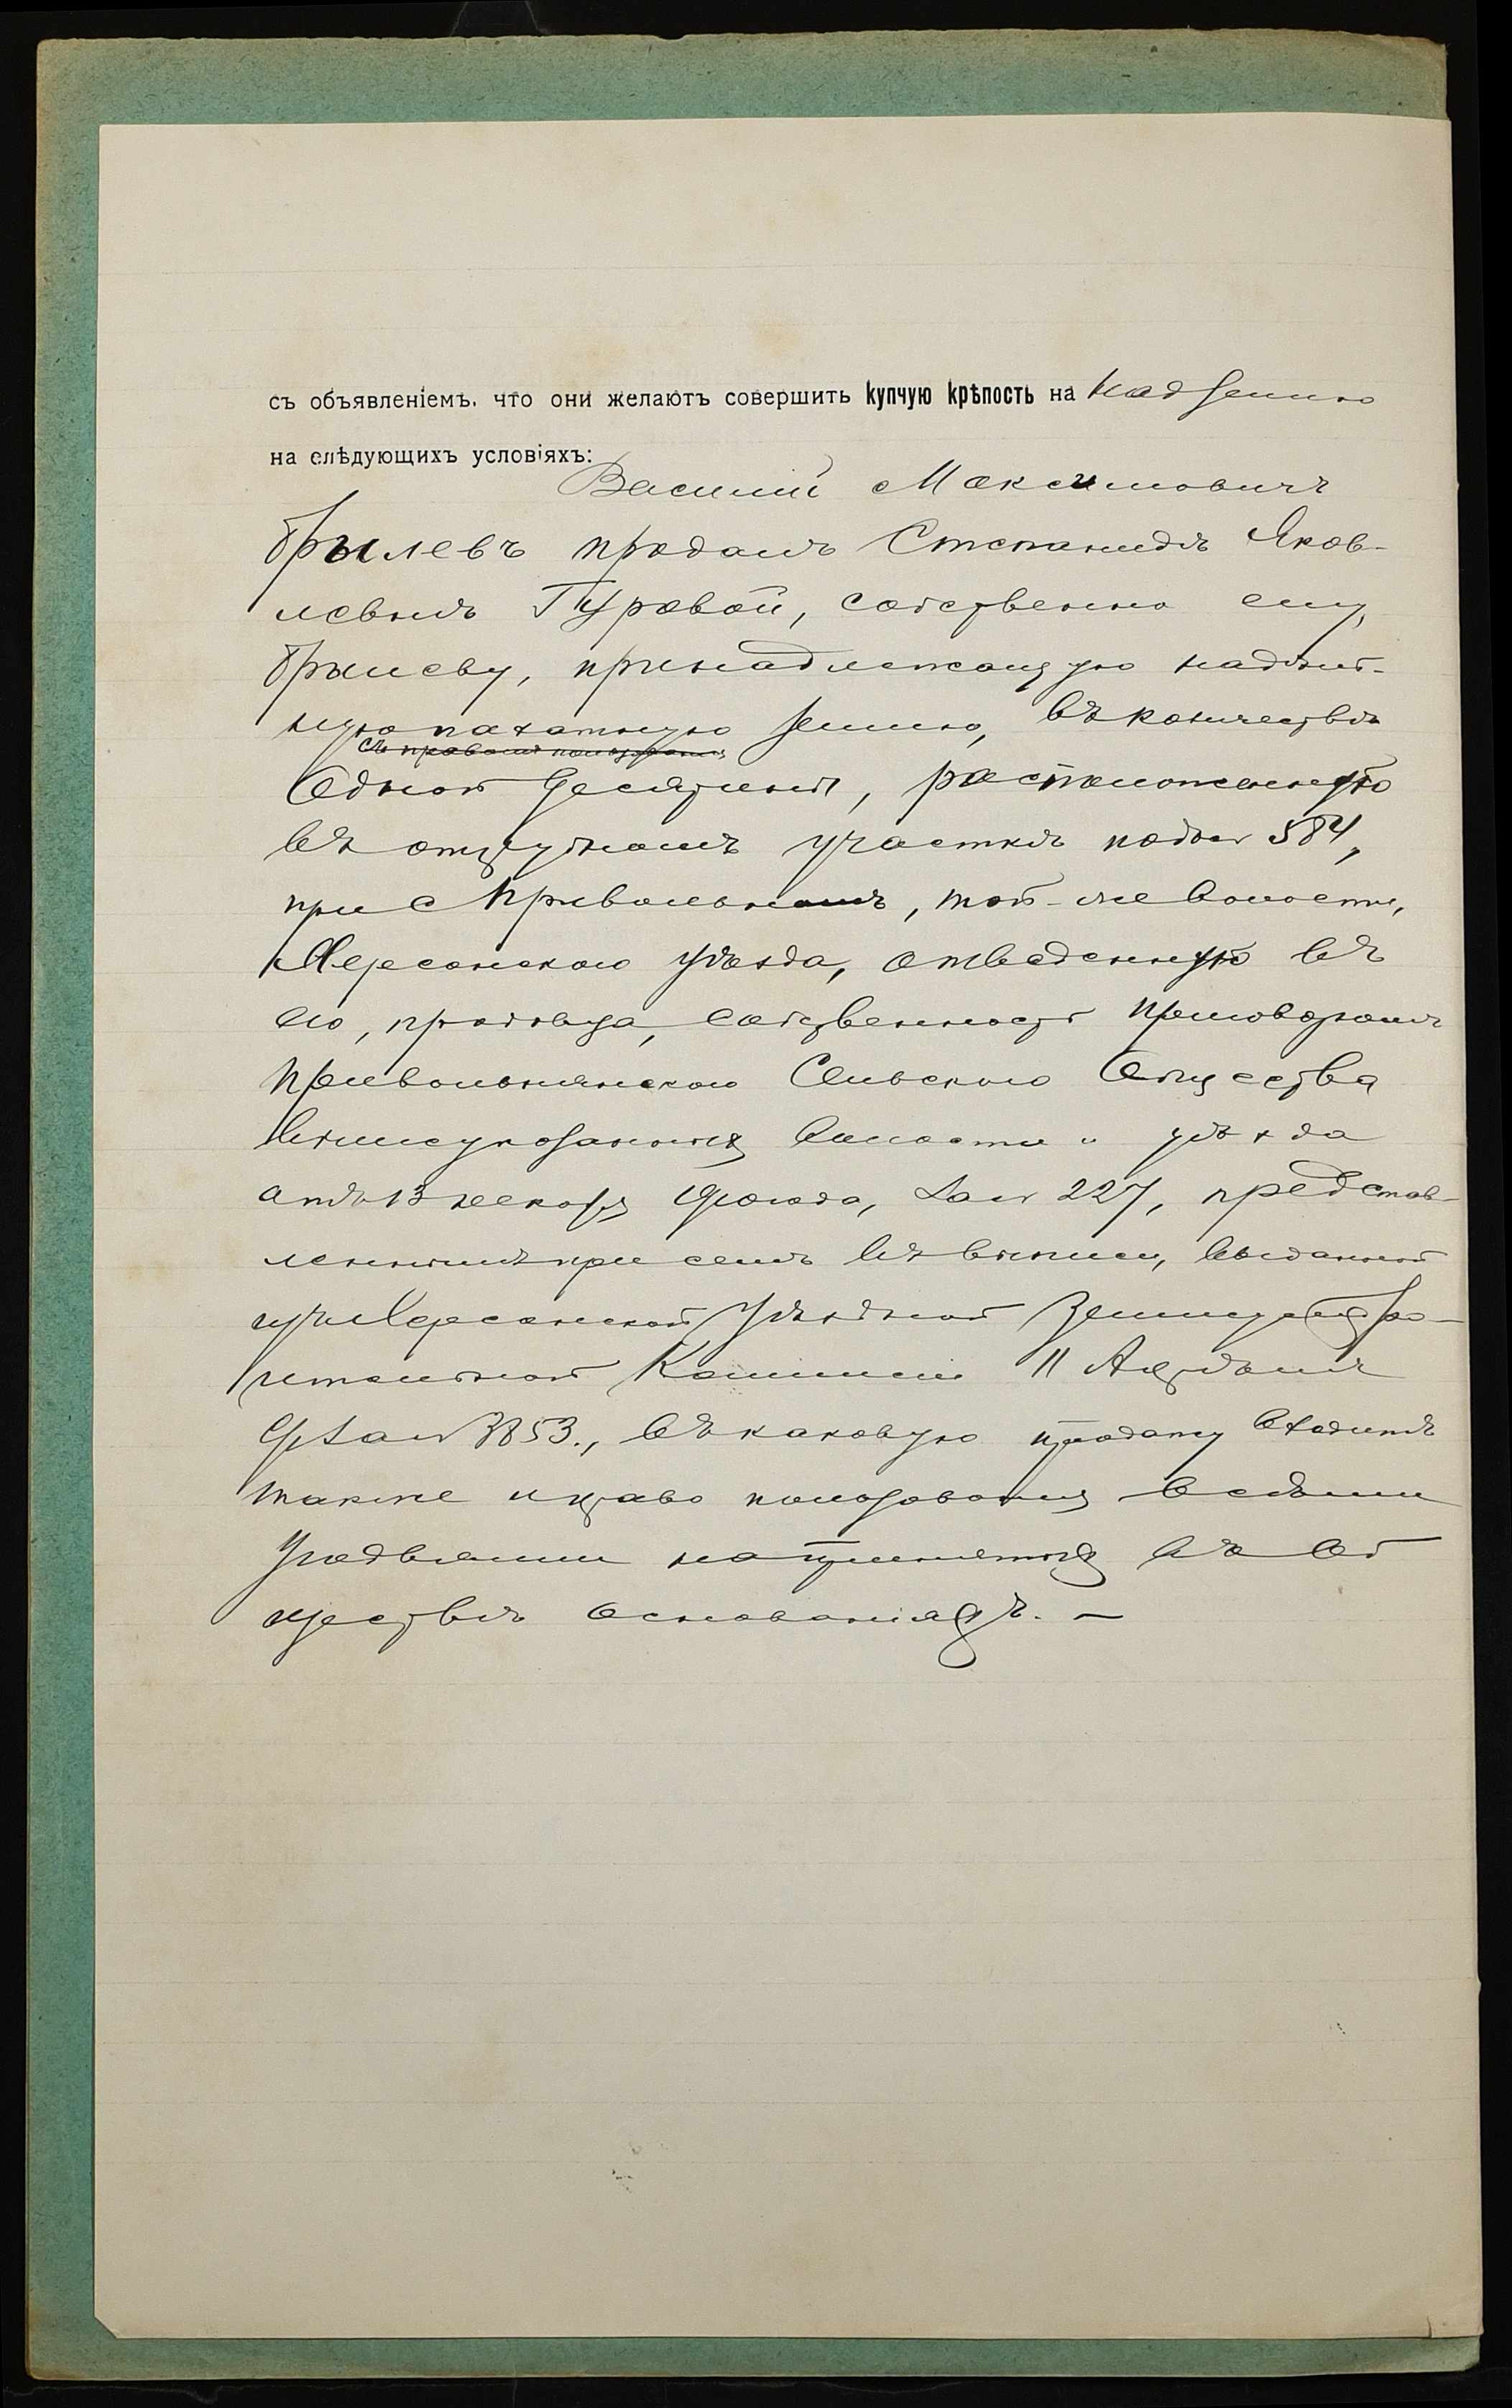 съ объявленіемъ, что они желаютъ совершить купчую крѣпость на над землю
на слѣдующихъ условіяхъ:
Василий Максимовичъ
Брылевъ продалъ Степанидѣ Яков-
левнѣ Гуровой, собственно ему,
Брылеву, принадлежащую надѣль-
ную пахатную землю, въ количествѣ
съ правомъ пользованія
Одной десятины, расположенную
въ отрубномъ участкѣ подъ № 584,
при с Привольномъ, той-же волости,
Херсонскаго уѣзда, отведенную въ
его, продавца, собственность приговоромъ
Привольнянскаго Сельскаго Общества
вышеуказанныхъ волости и уѣзда
отъ 13 декабря года, за № 227, представ-
леннымъ при семъ въ выписи, выданной
изъ Херсонской Уѣздной Землеустро-
ительной Комиссіи 11 Апрѣля
за № 3853., въ каковую продажу входитъ
также и право пользованія всѣми
угодьями на принятыхъ въ Об
ществѣ основаніяхъ. —